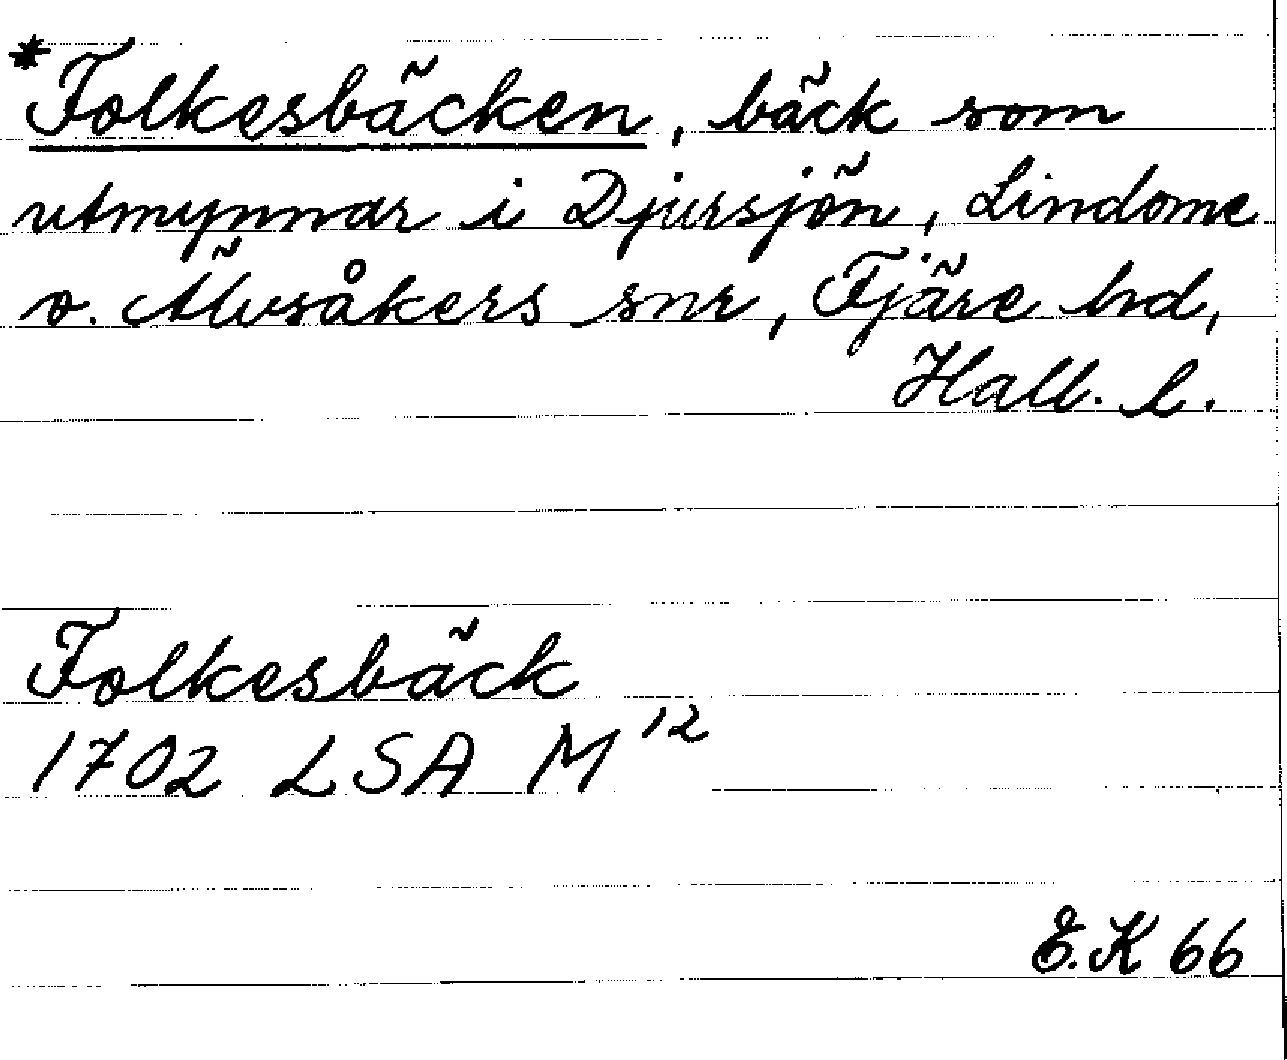 *Folkesbäcken, bäck som
utmynnar i Djursjön, Lindome
o. Älvsåkers snr, Fjäre hd,
Hall. l.
Folkesbäck
1702 LSA M12
E.K 66